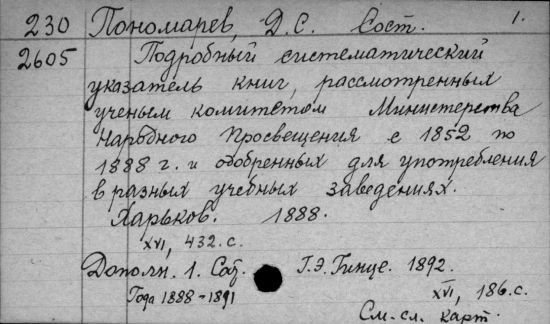 230 Пономарев, Д.С. Сост. 1.
2605 Подробный систематический
указатель книг, рассмотренных
ученым комитетом Министерства
Народного Просвещения с 1852 по
1888 г. и одобренных для употребления
в разных учебных заведениях.
Харьков. 1888.
XVI, 432. с.
Дополн. 1. Сост. Г.Э. Гинце. 1892.
Года 1888-1891 XVI, 186. с.
См. сл. карт.